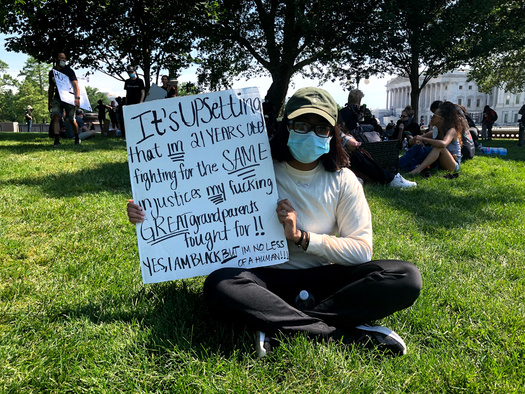 It's UPSETTING
that im 21 YEARS OLD
fighting for the SAME
injustices my fucking
GREAT grandparents
fought for!!
YES, I AM BLACK BUT IM NO LESS
OF A HUMAN!!!